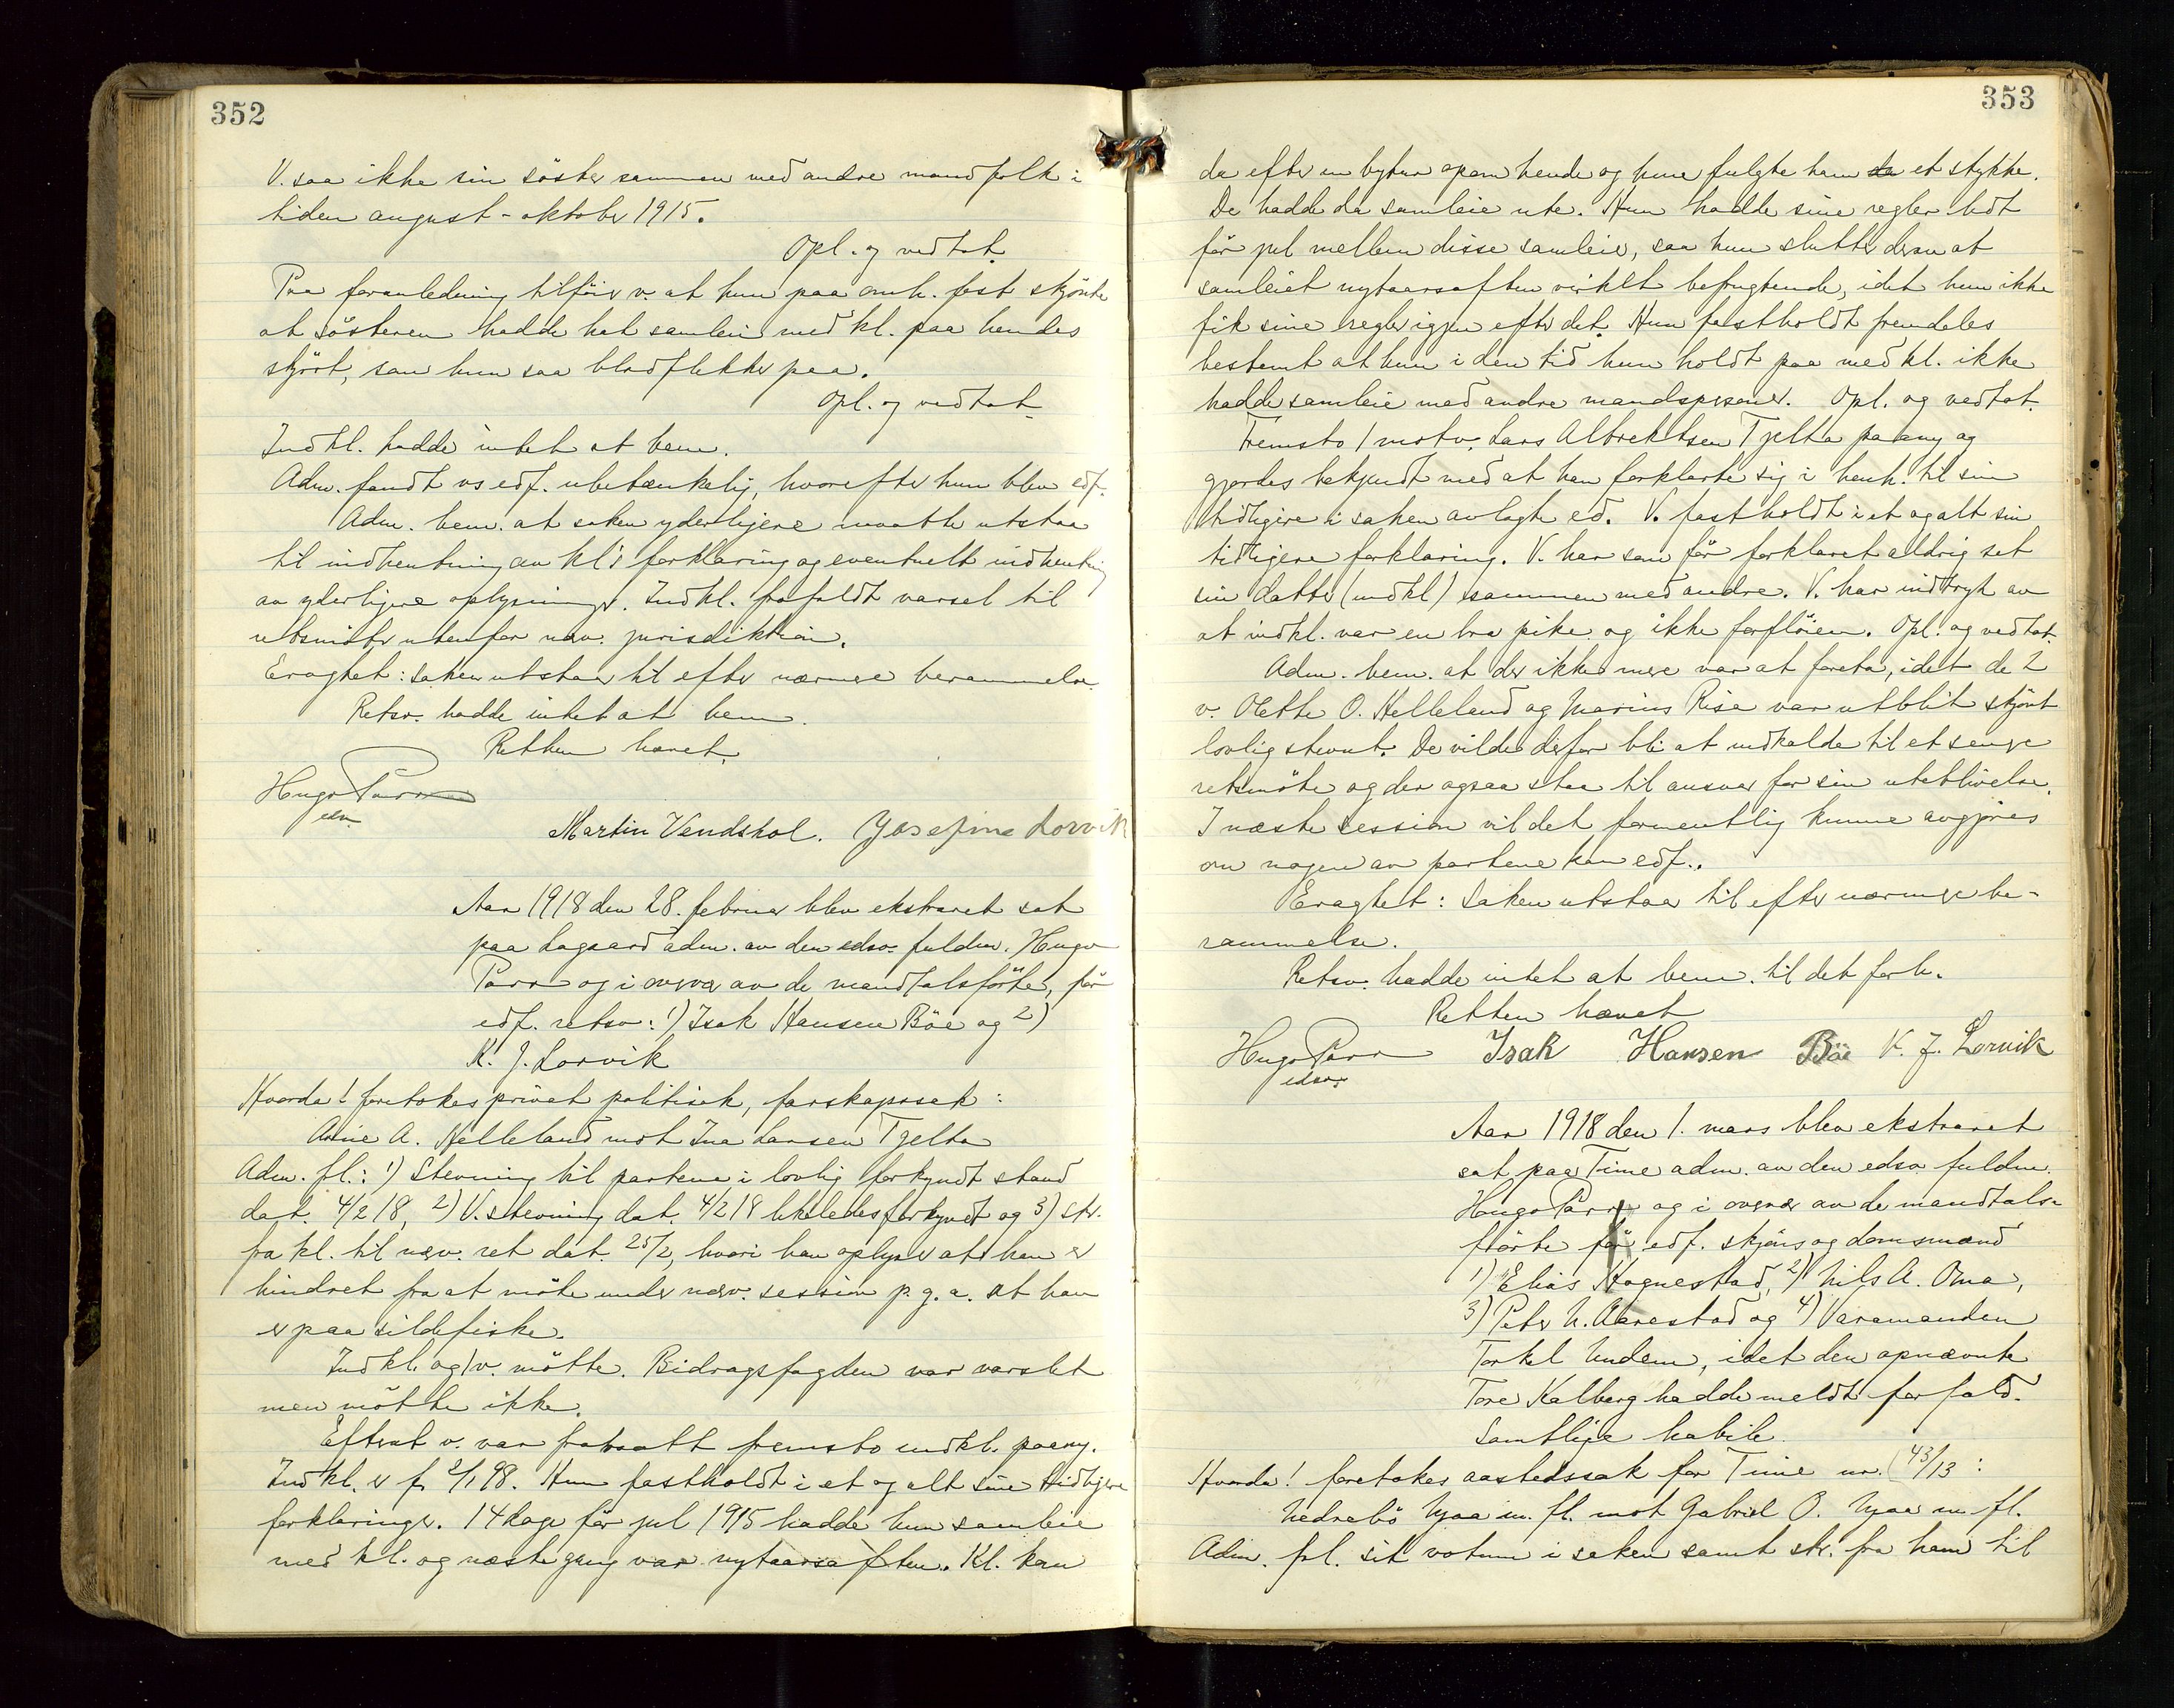 352
V. saa ikke sin söster sammen med andre mandfolk i
tiden august-oktober 1915.
Opl. og vedtat.
Paa foranledning tilföier v. at hun paa omh. fest skjönte
at sösteren hadde hat samleie med kl. paa hendes
skjört, som hun saa blodflekker paa.
Opl. og vedtat.
Indkl. hadde intet at bem.
Adm. fandt vs edf. ubetænkelig, hvorefter hun blev edf.
Adm. bem. at saken yderligere maatte utstaa
til indhentning av kl's forklaring og eventuelt indhentning
av yderligere oplysninger. Indkl. frafaldt varsel til
retsmöter utenfor nærv. jurisdiktion.
Eragtet: Saken utstaar til efter nærmere berammelse.
Retsv. hadde intet at bem.
Retten hævet.
Hugo Parr
edsv.
Martin Vendshol. Josefine Lorvik
Aar 1918 den 28. februar blev ekstraret sat
paa Lagaard adm. av den edsv. fuldm. Hugo
Parr og i overvær av de mandtalsförte, för
edf. retsv: 1) Isak Hansen Böe og 2)
K. J. Lorvik
Hvorda! foretokes privat politisak, farskapssak:
Arne A. Helleland mot Ina Larsen Tjelta
Adm. fl.: 1) Stevning til partene i lovlig forkyndt stand
dat. 4/2 18, 2) V. stevning dat. 4/2 18 likeledes forkyndt og 3) skr.
fra kl. til nærv. ret dat. 25/2, hvori han oplyser at han er
hindret fra at möte under nærv. session p. g. a. at han
er paa sildefiske.
Indkl. og 1 v. mötte. Bidragsfogden var varslet
men mötte ikke.
Efterat v. var fratraatt fremsto indkl. paany.
Indkl. er f. 2/1 98. Hun fastholdt i et og alt sine tidligere
forklaringer. 14 dage för jul 1915 hadde hun samleie
med kl. og næste gang var nytaarsaften. Kl. kom
353
da efter en bytur opom hende og hun fulgte ham da et stykke.
De hadde da samleie ute. Hun hadde sine regler lidt
för jul mellem disse samleier, saa hun slutter derav at
samleiet nytaarsaften virket befrugtende, idet hun ikke
fik sine regler igjen efter det. Hun fastholdt fremdeles
bestemt at hun i den tid hun holdt paa med kl. ikke
hadde samleie med andre mandspersoner. Opl. og vedtat.
Fremsto 1 motv. Lars Albrektsen Tjelta paany og
gjordes bekjendt med at han forklarte sig i henh. til sin
tidligere i saken avlagte ed. V. fastholdt i et og alt sin
tidligere forklaring. V. har som för forklaret aldrig set
sin datter (indkl) sammen med andre. V. har indtryk av
at indkl. var en bra pike og ikke forflöien. Opl. og vedtat.
Adm. bem. at der ikke mere var at foreta, idet de 2
v. Olette O. Helleland og Marius Risa var utblit skjönt
lovlig stevnt. De vilde derfor bli at indkalde til et senere
retsmöte og der ogsaa staa til ansvar for sin uteblivelse.
I næste session vil det formentlig kunne avgjöres
om nogen av partene kan edf..
Eragtet: Saken utstaar til efter nærmere be-
rammelse.
Retsv. hadde intet at bem. til det forh.
Retten hævet
Hugo Parr Isak Hansen Böe K. J. Lorvik
edsv.
Aar 1918 den 1. mars blev ekstraret
sat paa Time adm. av den edsv. fuldm.
Hugo Parr og i overvær av de mandtals-
förte för edf. skjöns og domsmænd
1) Elias Hognestad, 2) Nils A. Oma,
3) Peter N. Aarestad og 4) Varamanden
Torkel Undem, idet den opnævnte
Tore Kalberg hadde meldt forfald.
Samtlige habile.
Hvorda! foretokes aastedssak for Time nr. 43/13:
Nedrebö Njaa m. fl. mot Gabriel O. Njaa m. fl.
Adm. frl. sit votum i saken samt skr. fra ham til